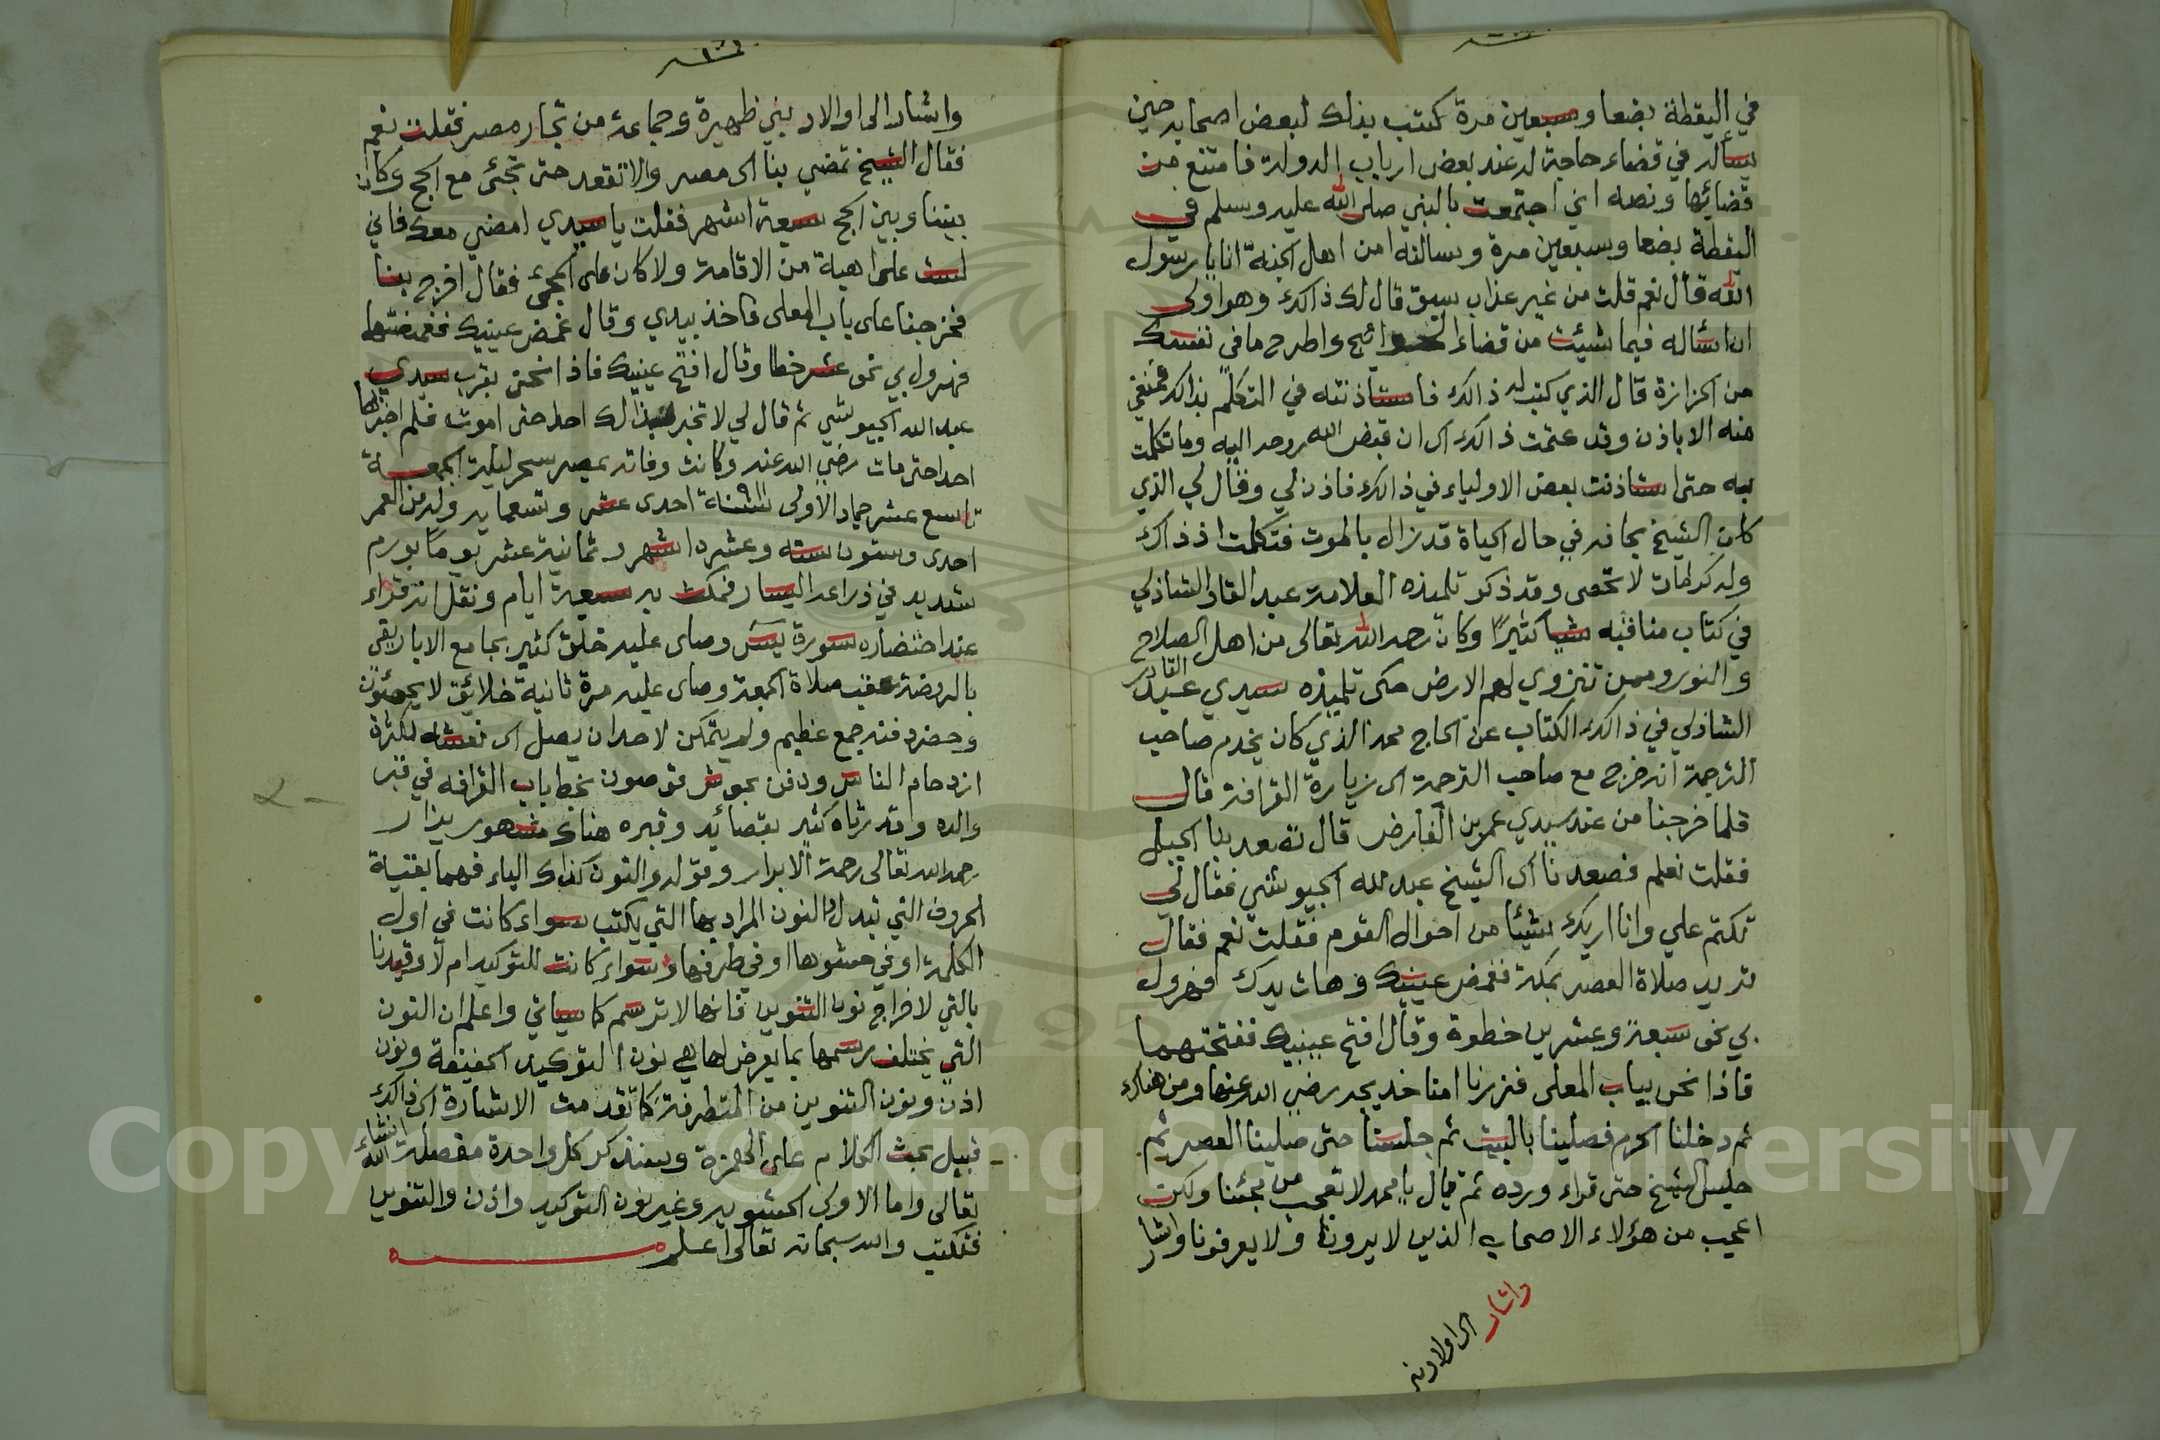 في اليقظة بضعا وسبعين مرة كتب بذلك لبعض اصحابه حين
يسأله في قضاء حاجة له عند بعض ارباب الدولة فامتنع من
قضائها ونصه اني اجتمعت بالنبي صلى الله عليه وسلم في
اليقظة بضعا وسبعين مرة وسالته امن اهل الجنة انا يا رسول
الله قال نعم قلت من غير عذاب يسبق قال لك ذالك وهو اولى
ان اسأله فيما شئت من قضاء الحوائج واطرح ما في نفسك
من الحزازة قال الذي كتب له ذالك فاستاذنته في التكلم بذالك فمنعني
منه الا باذن وقد كتمت ذالك الى ان قبض الله روحه اليه وما تكلمت
به حتى استاذنت بعض الاولياء في ذالك فاذن لي وقال لي الذي
كان الشيخ يخافه في حال الحياة قد زال بالموت فتكلمت اذ ذاك
وله كرامات لا تحصى وقد ذكر تلميذه العلامة عبد القادر الشاذلي
في كتاب مناقبه شيأ كثيرًا وكان رحمه الله تعالى من اهل الصلاح
والنور وممن تنزوي لهم الارض حكى تلميذه سيدي عبد القادر
الشاذلي في ذالك الكتاب عن الحاج محمد الذي كان يخدم صاحب
الترجمة انه خرج مع صاحب الترجمة الى زيارة القرافة قال
فلما خرجنا من عند سيدي عمر بن الفارض قال تصعد بنا الجبل
فقلت نعم فصعدنا الى الشيخ عبد الله الجيوشي فقال لي
تكتم علي وانا اريك شيئا من احوال القوم فقلت نعم فقال
تريد صلاة العصر بمكة فغمض عينيك وهات يدك فهرول
بي نحو سبعة وعشرين خطوة وقال افتح عينيك ففتحتهما
فاذا نحن بباب المعلى فزرنا امنا خديجة رضي الله عنها ومن هناك
ثم دخلنا الحرم فصلينا بالبيت ثم جلسنا حتى صلينا العصر ثم
جلس الشيخ حتى قراء ورده ثم قال يا محمد لا تعجب من مجئنا ولكن
اعجب من هؤلاء الاصحاب الذين لا يرونا ولا يعرفونا واشار
واشار الى اولاد بني
واشار الى اولاد بني ظهيرة وجماعة من تجار مصر فقلت نعم
فقال الشيخ تمضي بنا الى مصر والا تقعد حتى تجئ مع الحج وكان
بيننا وبين الحج سبعة اشهر فقلت يا سيدي امضي معك فاني
لست على اهبة من الاقامة ولا كان على المجئ فقال اخرج بنا
فخرجنا على باب المعلى فاخذ بيدي وقال غمض عينيك فغمضتهما
فهرول بي نحو عشر خطا وقال افتح عينيك فاذا نحن بقرب سيدي
عبد الله الجيوشي ثم قال لي لا تخبر بذالك احدا حتى اموت فلم اخبر بها
احدا حتى مات رضي الله عنه وكانت وفاته بمصر سحر ليلة الجمعة
تاسع عشر جماد الأولى سنة احدى عشر وتسعماية وله من العمر
احدى وستون سنة وعشرة اشهر وثمانية عشر يوما بورم
شديد في ذراعه اليسار فمكث به سبعة ايام ونقل انه قراء
عند احتضاره سورة يس وصلى عليه خلق كثير بجامع الاباريقي
بالروضة عقب صلاة الجمعة وصلى عليه مرة ثانية خلائق لا يحصون
وحضر دفنه جمع عظيم ولم يتمكن لاحد ان يصل الى نعشه لكثرة
ازدحام الناس ودفن بحوش قوصون بخط باب القرافه في قبر
والده وقد رثاه كثير بقصائد وقبره هناك مشهور يزار
رحمه الله تعالى رحمة الابرار وقوله والنون كذاك الياء فهما بقية
الحروف التي تبدل والنون المراد بها التي يكتب سواء كانت في اول
الكلمة او في حشوها او في طرفها وسواء كانت للتوكيد ام لا وقيدنا
بالتي لاخراج نون التنوين فانها لا ترسم كما سياتي واعلم ان النون
التي يختلف رسمها بما يعرض لها هي نون التوكيد الخفيفة ونون
اذن ونون التنوين من المتطرفة كما تقدمت الاشارة الى ذالك
قبيل بحث الكلام على الهمزة وسنذكر كل واحدة مفصلة انشاء الله
تعالى واما الاولى الحشوية وغير نون التوكيد واذن والتنوين
فتكتب والله سبحانه تعالى اعلم